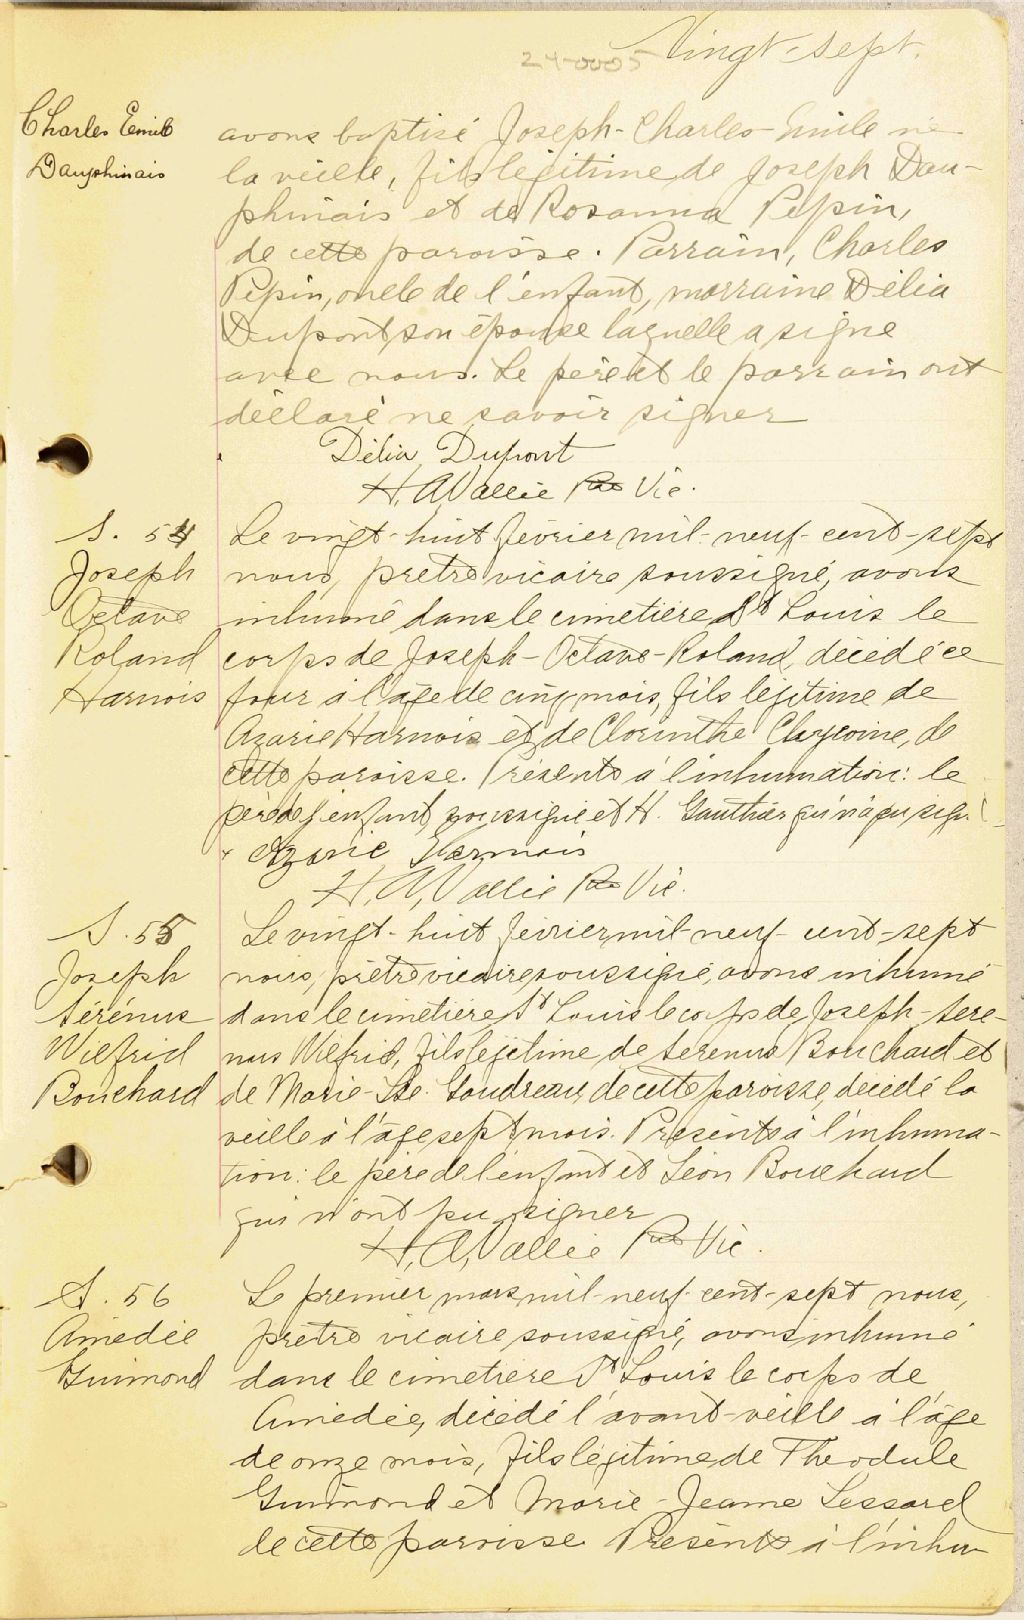 Vingt-sept.
24-0005
Charles Emile
Dauphinais
avons baptisé Joseph-Charles-Emile né
la veille, fils légitime de Joseph Dau-
phinais et de Rosanna Pepin,
de cette paroisse. Parrain, Charles
Pepin, oncle de l'enfant, marraine Délia
Dupont, son épouse laquelle a signé
avec nous. Le père et le parrain ont
déclaré ne savoir signer
Délia Dupont
H. A. Vallée Ptre Vic.
S. 54
Joseph
Octave
Roland
Harnois
Le vingt-huit février mil-neuf-cent-sept
nous, prêtre vicaire soussigné, avons
inhumé dans le cimetière St Louis le
corps de Joseph-Octave-Roland, décédé ce
jour à l'âge de cinq mois, fils légitime de
Azarie Harnois et de Clorinthe
de
cette paroisse. Présents à l'inhumation: le
père de l'enfant soussigné et H. Gauthier qui n'a pu sign
Azarie Harnois
H. A. Vallée Ptre Vic.
S. 55
Joseph
Sérénus
Wilfrid
Bouchard
Le vingt-huit février mil-neuf-cent-sept
nous, prêtre vicaire soussigné, avons inhumé
dans le cimetière St Louis le corps de Joseph-Séré-
nus Wilfrid, fils légitime de Sérénus Bouchard et
de Marie-Ste. Gaudreau, de cette paroisse, décédé la
veille à l'âge sept mois. Présents à l'inhuma-
tion: le père de l'enfant et Léon Bouchard
qui n'ont pu signer
H. A. Vallée Ptre Vic.
S. 56
Amédée
Guimond
Le premier mars mil-neuf-cent-sept nous,
prêtre vicaire soussigné, avons inhumé
dans le cimetière St Louis le corps de
Amédée, décédé l'avant-veille à l'âge
de onze mois, fils légitime de Théodule
Guimond et Marie-Jeanne Lessard
de cette paroisse. Présents à l'inhu-